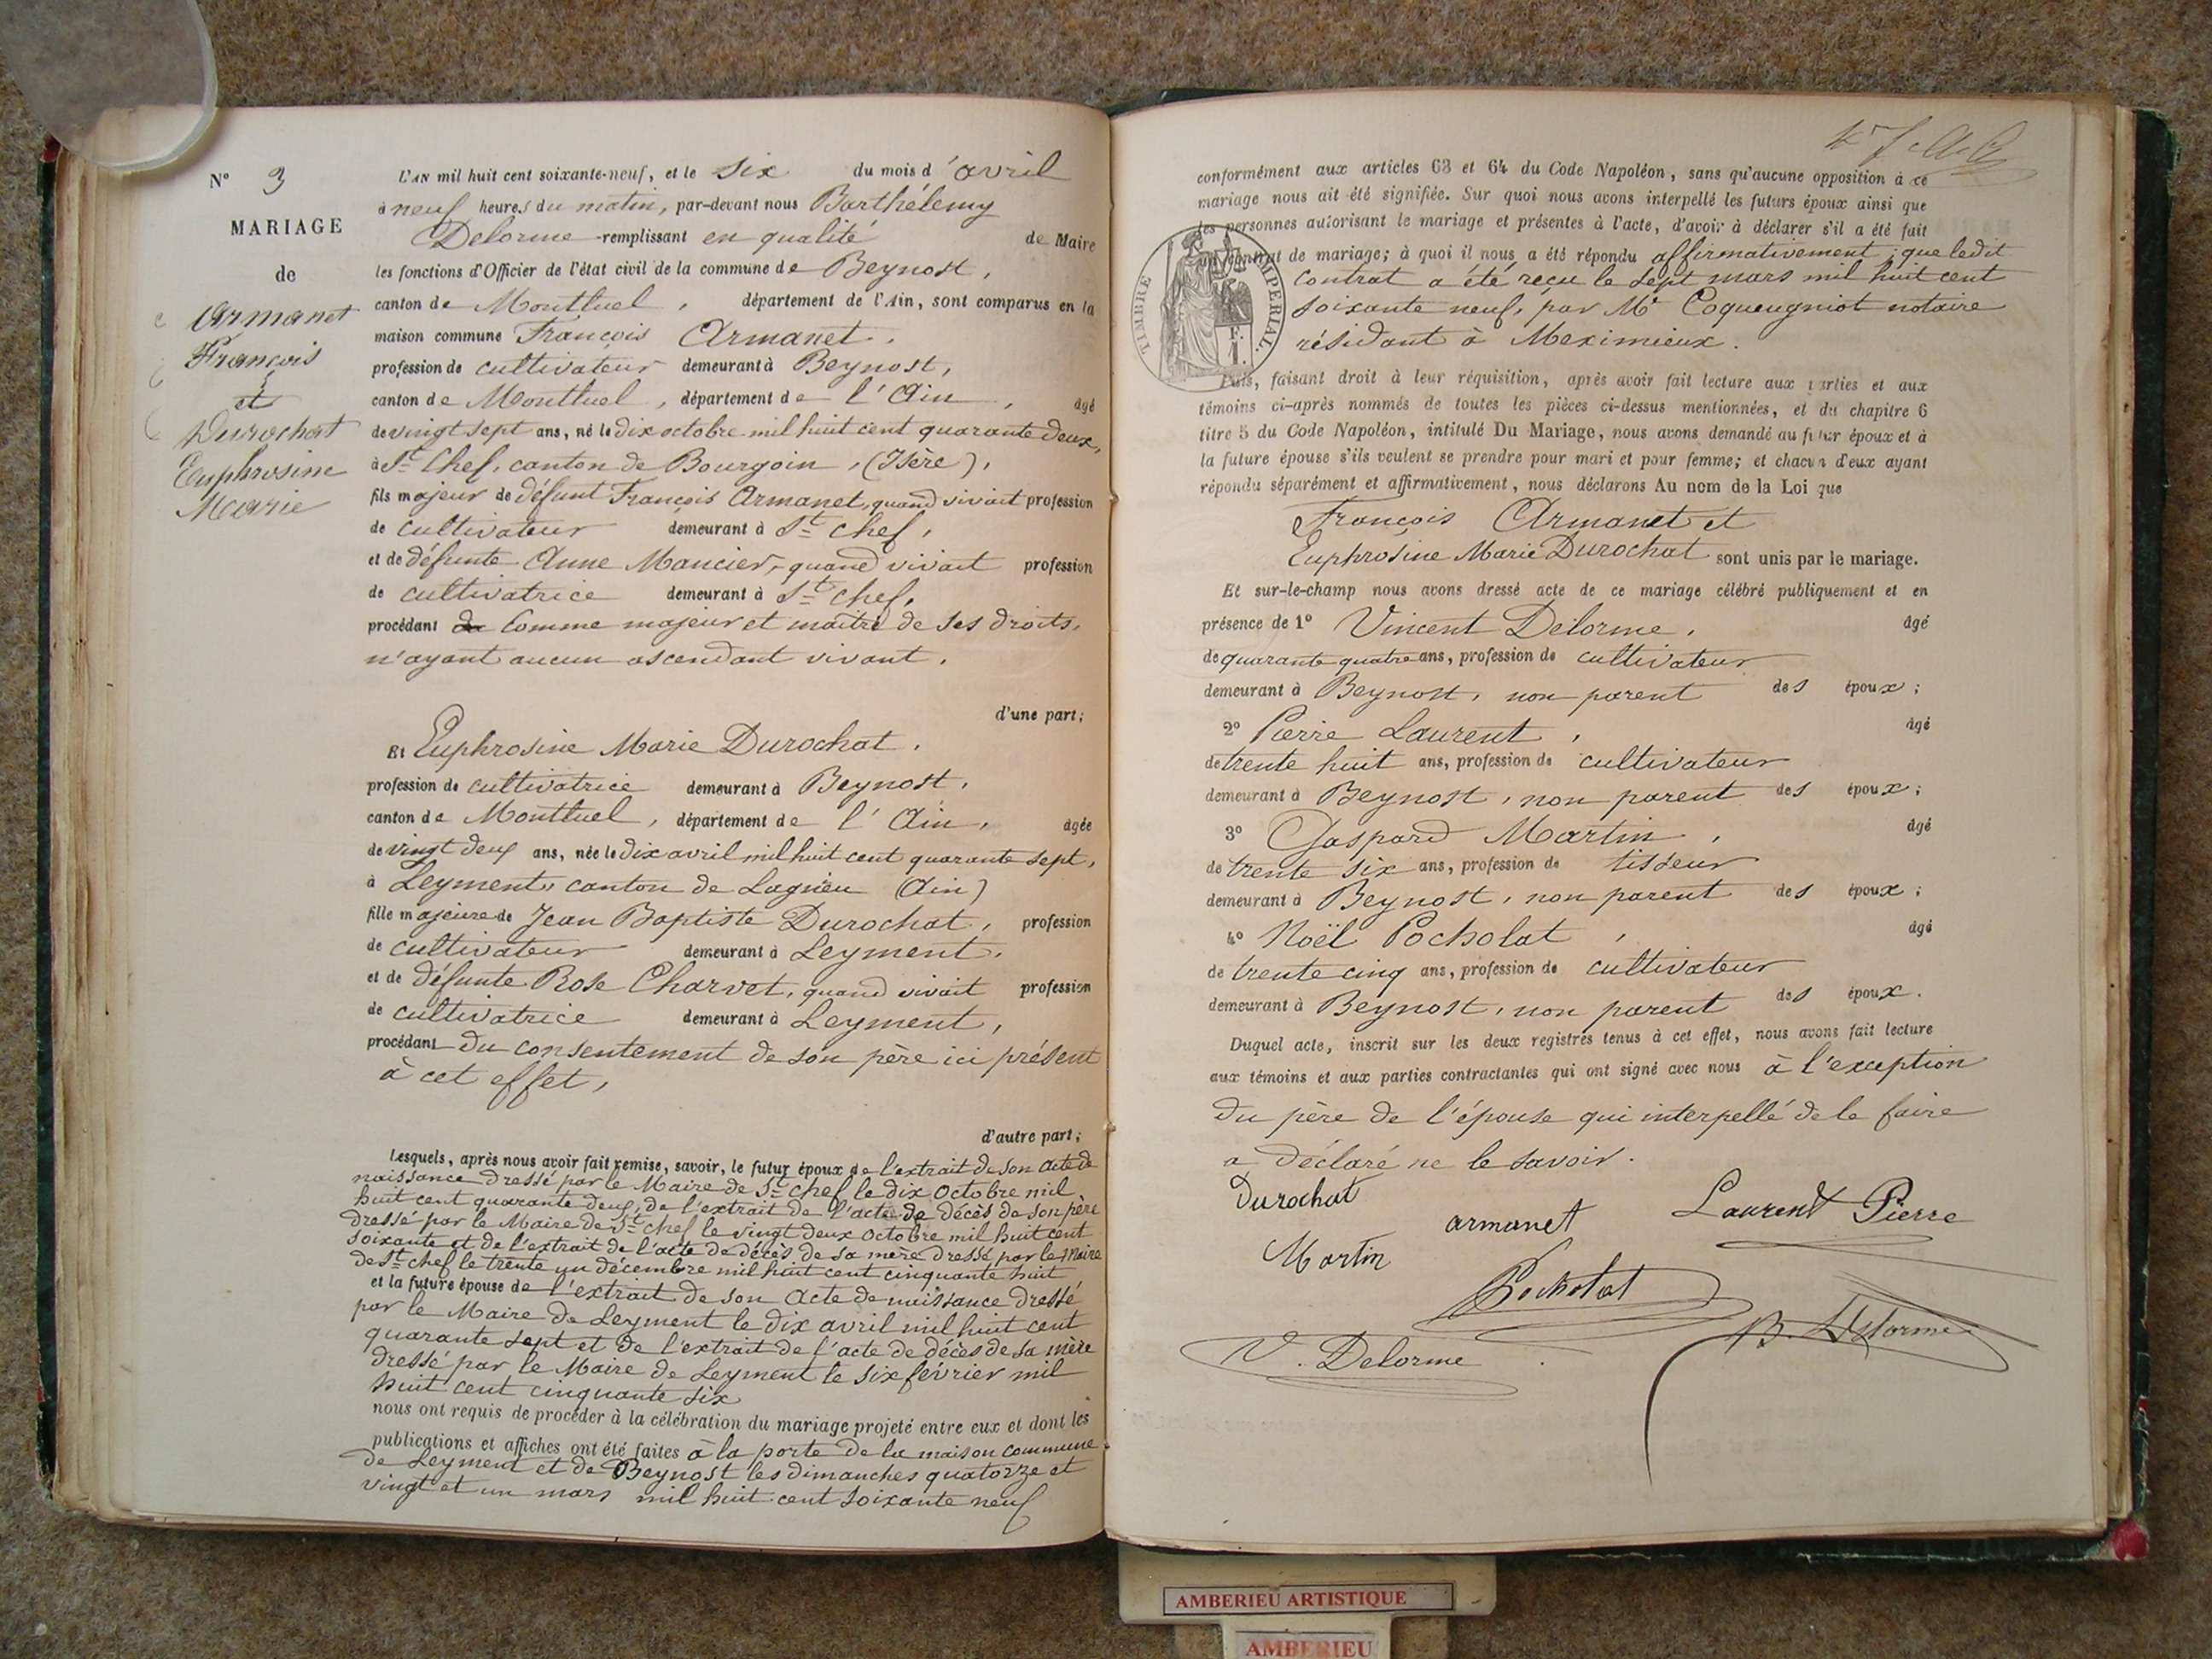 N° 3
MARIAGE
de
Armanet
François
et
Durochat
Euphrosine
Marie
L'AN mil huit cent soixante-neuf, et le six du mois d'avril
à neuf heures du matin, par-devant nous Barthélemy
Delorme remplissant en qualité de Maire
les fonctions d'Officier de l'état civil de la commune de Beynost,
canton de Montluel, département de l'Ain, sont comparus en la
maison commune François Armanet,
profession de cultivateur demeurant à Beynost,
canton de Montluel, département de l'Ain, âgé
de vingt sept ans, né le dix octobre mil huit cent quarante deux,
à St Chef, canton de Bourgoin, (Isère),
fils majeur de défunt François Armanet, quand vivait profession
de cultivateur demeurant à St Chef,
et de défunte Anne Mancier, quand vivait profession
de cultivatrice demeurant à St Chef,
procédant comme majeur et maître de ses droits,
n'ayant aucun ascendant vivant.
d'une part;
Et Euphrosine Marie Durochat,
profession de cultivatrice demeurant à Beynost,
canton de Montluel, département de l'Ain, âgée
de vingt deux ans, née le dix avril mil huit cent quarante sept,
à Leyment, canton de Lagnieu (Ain)
fille majeure de Jean Baptiste Durochat, profession
de cultivateur demeurant à Leyment,
et de défunte Rose Charvet, quand vivait profession
de cultivatrice demeurant à Leyment,
procédant du consentement de son père ici présent
à cet effet,
d'autre part;
Lesquels, après nous avoir fait remise, savoir, le futur époux de l'extrait de son acte de
naissance dressé par le Maire de St Chef le dix octobre mil
huit cent quarante deux, de l'extrait de l'acte de décès de son père
dressé par le Maire de St Chef le vingt deux octobre mil huit cent
soixante et de l'extrait de l'acte de décès de sa mère dressé par le Maire
de St Chef le trente un décembre mil huit cent cinquante huit
et la future épouse de l'extrait de son acte de naissance dressé
par le Maire de Leyment le dix avril mil huit cent
quarante sept et de l'extrait de l'acte de décès de sa mère
dressé par le Maire de Leyment le six février mil
huit cent cinquante six
nous ont requis de procéder à la célébration du mariage projeté entre eux et dont les
publications et affiches ont été faites à la porte de la maison commune
de Leyment et de Beynost les dimanches quatorze et
vingt et un mars mil huit cent soixante neuf
conformément aux articles 63 et 64 du Code Napoléon, sans qu'aucune opposition à ce
mariage nous ait été signifiée. Sur quoi nous avons interpellé les futurs époux ainsi que
les personnes autorisant le mariage et présentes à l'acte, d'avoir à déclarer s'il a été fait
un contrat de mariage; à quoi il nous a été répondu affirmativement; que ledit
contrat a été reçu le sept mars mil huit cent
soixante neuf, par Me Coqueugniot notaire
résidant à Meximieux.
TIMBRE IMPERIAL
1 F.
Puis, faisant droit à leur réquisition, après avoir fait lecture aux parties et aux
témoins ci-après nommés de toutes les pièces ci-dessus mentionnées, et du chapitre 6
titre 5 du Code Napoléon, intitulé Du Mariage, nous avons demandé au futur époux et à
la future épouse s'ils veulent se prendre pour mari et pour femme; et chacun d'eux ayant
répondu séparément et affirmativement, nous déclarons Au nom de la Loi que
François Armanet et
Euphrosine Marie Durochat sont unis par le mariage.
Et sur-le-champ nous avons dressé acte de ce mariage célébré publiquement et en
présence de 1° Vincent Delorme, âgé
de quarante quatre ans, profession de cultivateur
demeurant à Beynost, non parent des époux;
2° Pierre Laurent, âgé
de trente huit ans, profession de cultivateur
demeurant à Beynost, non parent des époux;
3° Gaspard Martin, âgé
de trente six ans, profession de tisseur
demeurant à Beynost, non parent des époux;
4° Noël Pocholat, âgé
de trente cinq ans, profession de cultivateur
demeurant à Beynost, non parent des époux.
Duquel acte, inscrit sur les deux registres tenus à cet effet, nous avons fait lecture
aux témoins et aux parties contractantes qui ont signé avec nous à l'exception
du père de l'épouse qui interpellé de le faire
a déclaré ne le savoir.
Durochat
armanet
Laurent Pierre
Martin
Pocholat
V. Delorme
B. Delorme
AMBERIEU ARTISTIQUE
AMBERIEU